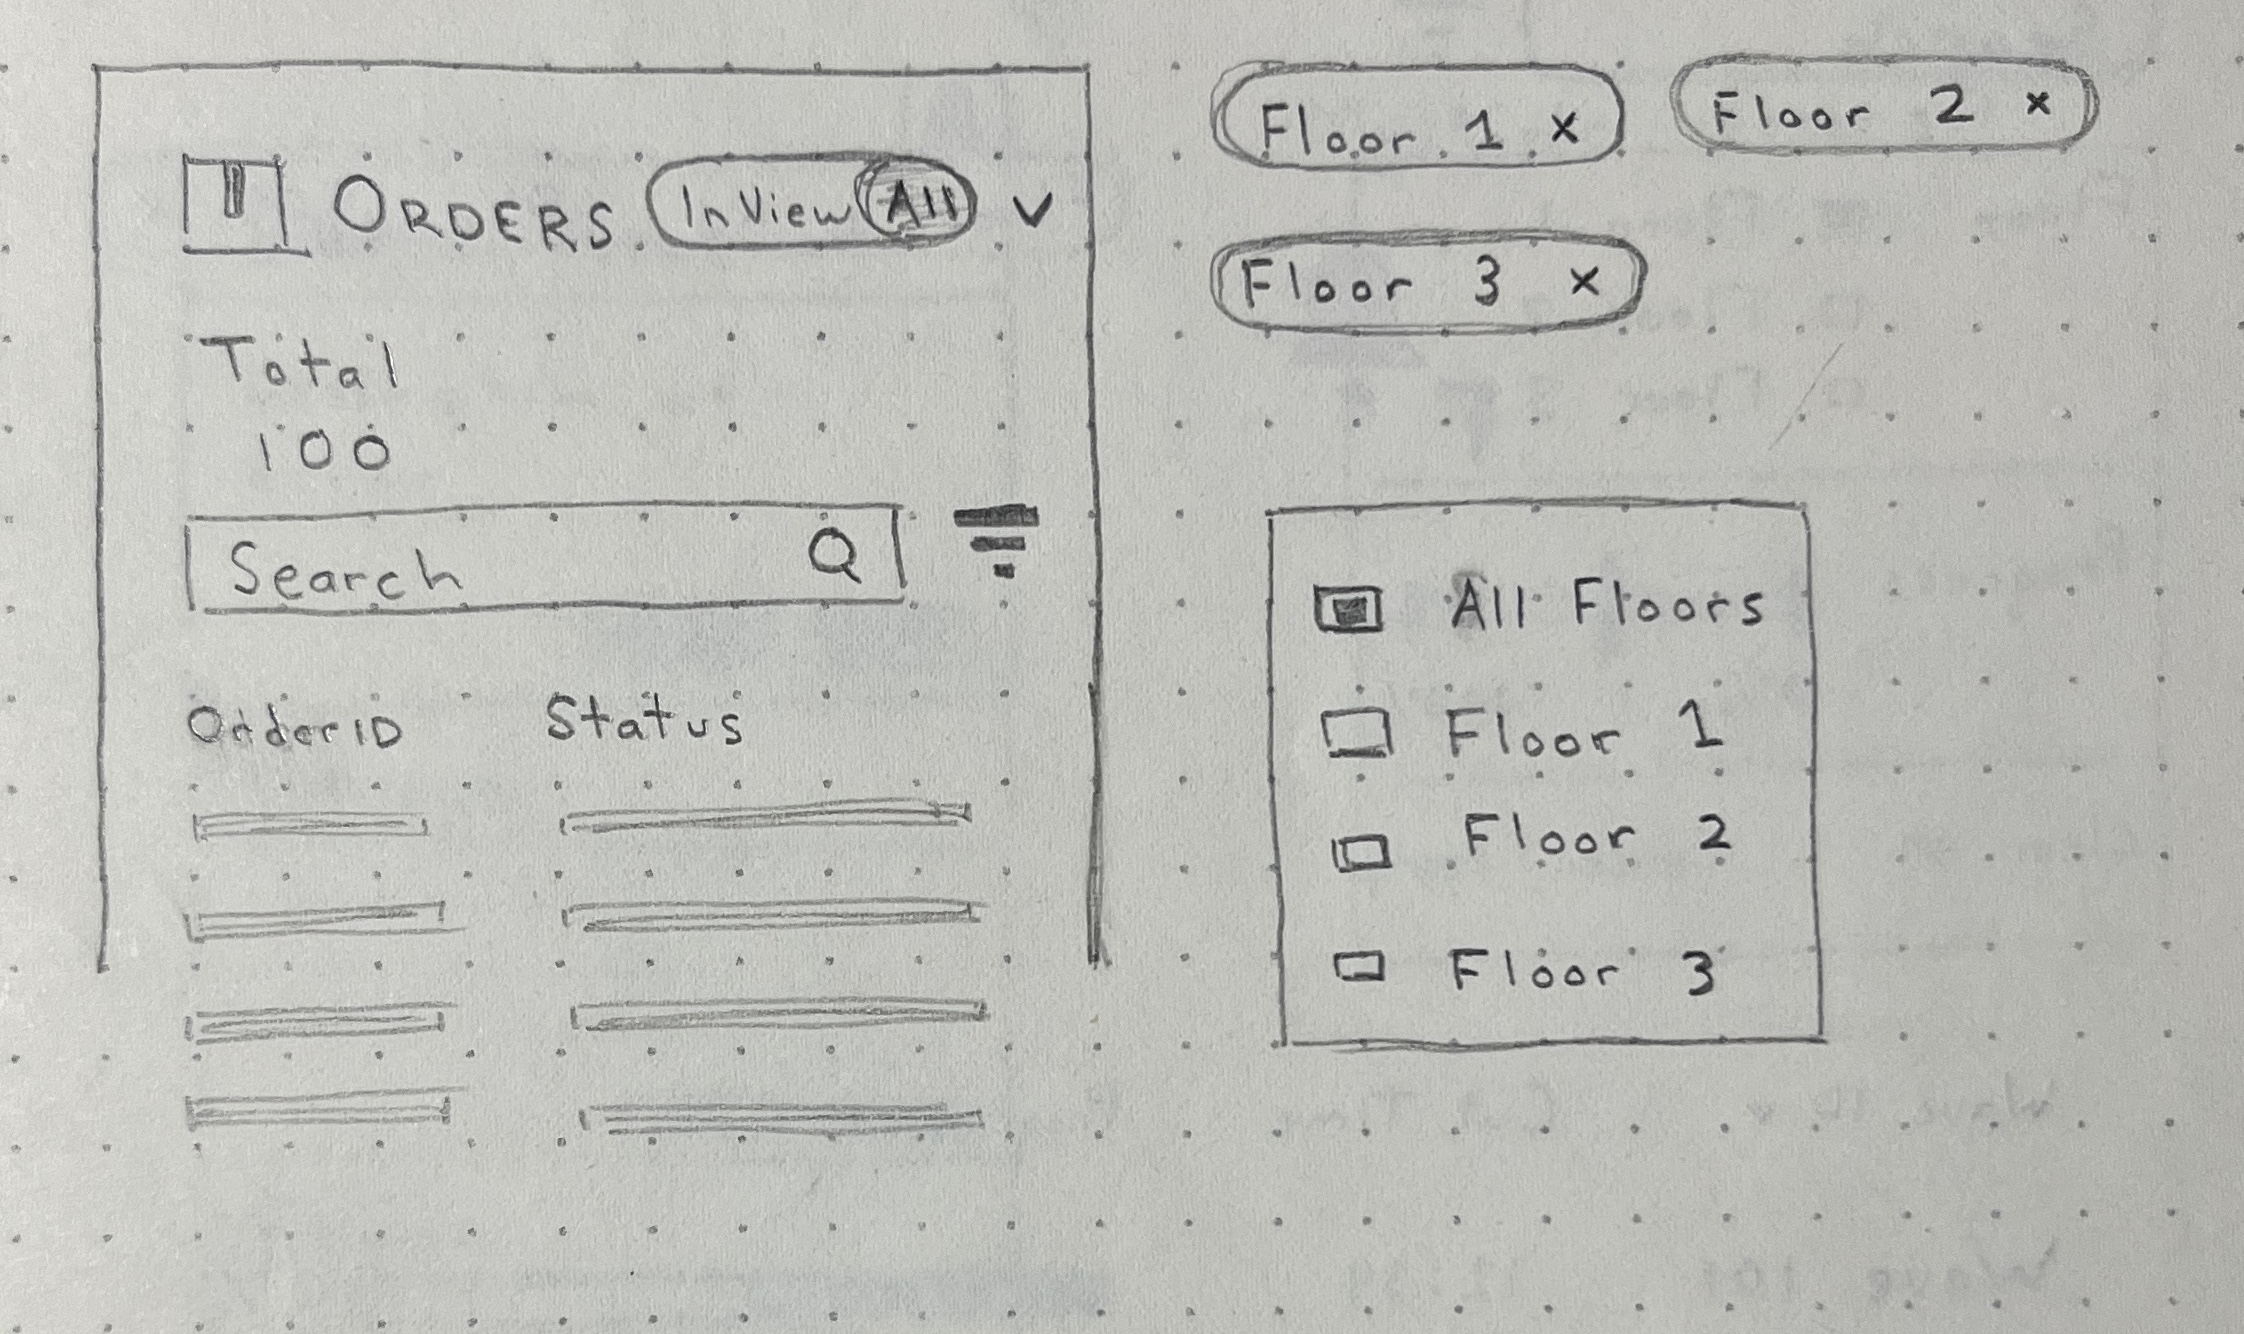 ORDERS InView All
Total
100
Search
OrderID Status
Floor 1 x
Floor 2 x
Floor 3 x
All Floors
Floor 1
Floor 2
Floor 3